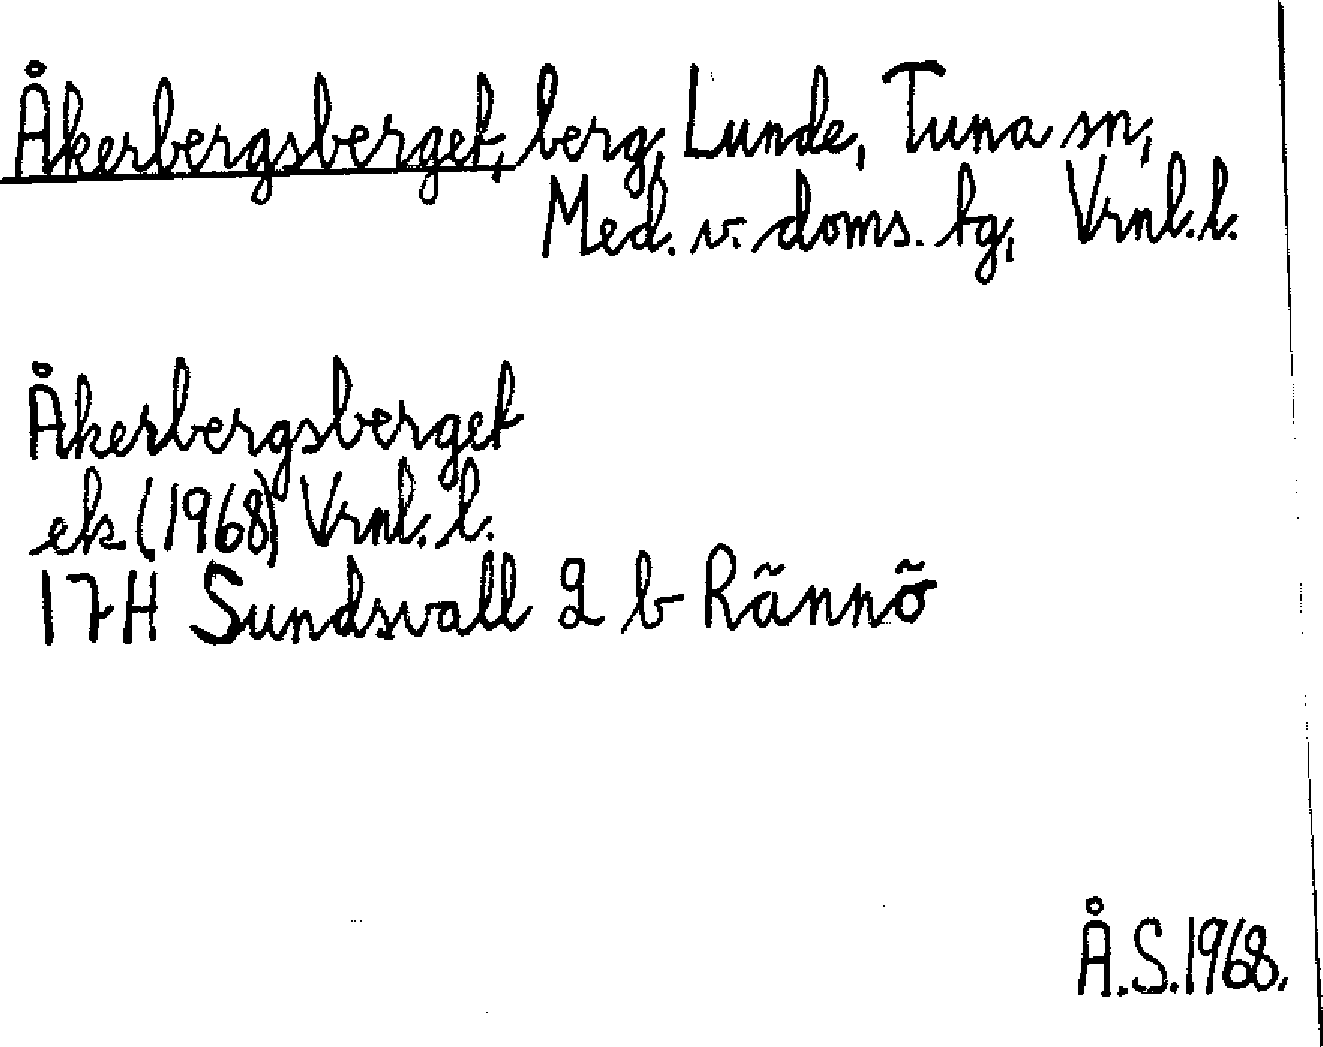 Åkerbergsberget, berg, Lunde, Tuna sn,
Med. v. doms. tg, Vrnl. l.
Åkerbergsberget
ek (1968) Vrnl. l.
17H Sundsvall 2 b Rännö
Å.S. 1968.